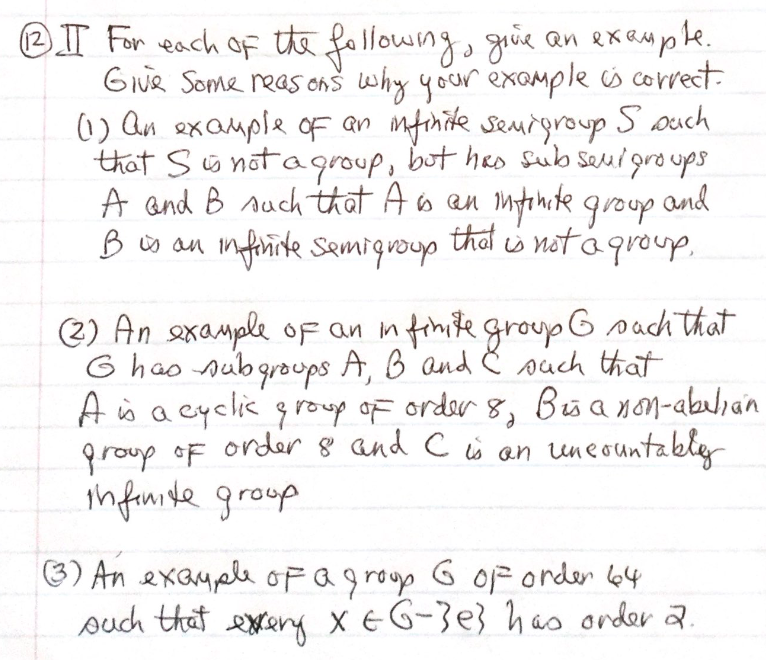 (12) II For each of the following, give an example.
Give Some reasons why your example is correct.
(1) An example of an infinite semigroup S such
that S is not a group, but has subsemigroups
A and B such that A is an infinite group and
B is an infinite semigroup that is not a group.
(2) An example of an infinite group G such that
G has subgroups A, B and C such that
A is a cyclic group of order 8, B is a non-abelian
group of order 8 and C is an uncountably
infinite group
(3) An example of a group G of order 64
such that every x ∈ G-{e} has order 2.